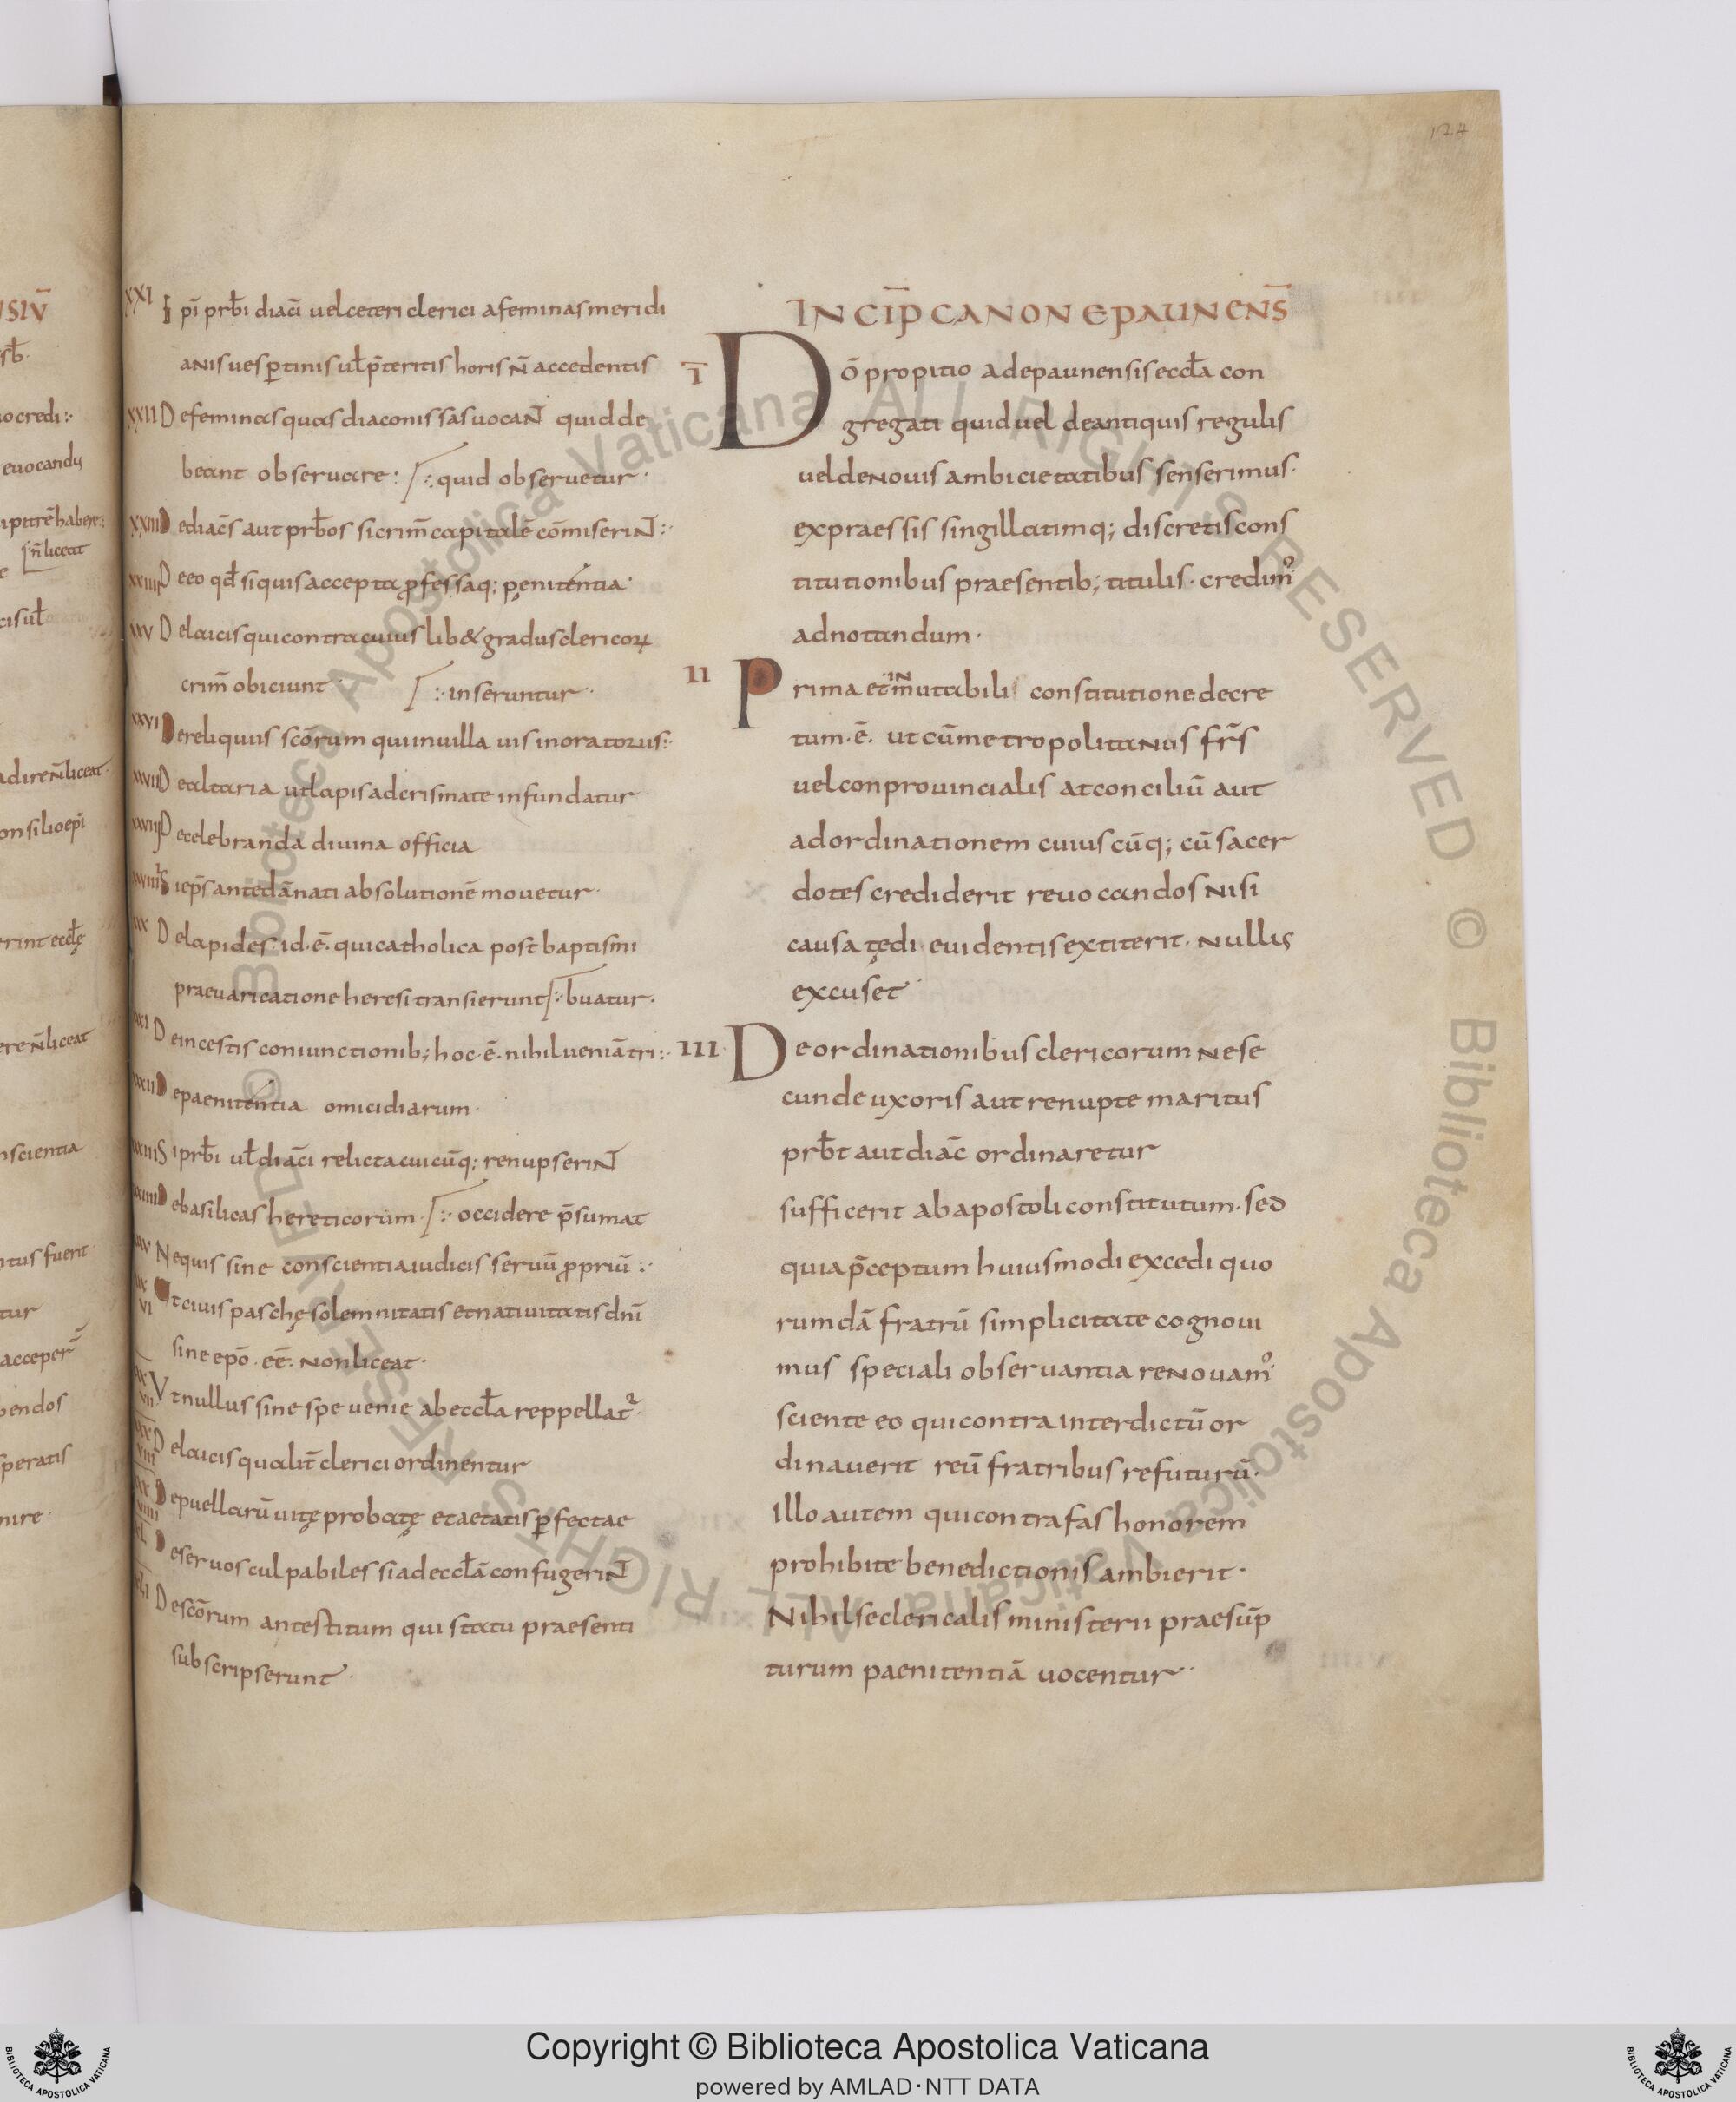 124
XXI Epī prb̄i diac̄i uel ceteri clerici a feminas meridi
anis uespertinis ul̄ p̄teritis horis n̄ accedentis
XXII De feminas quas diaconissas uocaN̄ quid de
beant obseruare : quid obseruetur ·
XXIII De diac̄s aut prb̄os si crim̄ capitalē cōmiseriN̄ :·
XXIIII De eo qd̄ si quis accepta professaq; penitentia ·
XXV De laicis qui contra cuius lib& gradus clericoꝝ
crim̄ obiciunt · inseruntur ·
XXVI De reliquiis scōrum qui in uilla uis in oratoriis :·
XXVII De altaria ut lapis ad crismate infundatur
XXVIII De celebranda diuina officia
XXVIIII Si ep̄s ante dānati absolutionē mouetur ·
XXX De lapides id · ē · qui catholica post baptismi
praeuaricatione heresi transierunt buatur ·
XXXI De incestis coniunctionib; hoc · ē · nihil ueniā tri :·
XXXII De paenitentia omicidiarum ·
XXXIII Si prb̄i ul̄ diac̄i relicta cuicūq; renupseriN̄
XXXIIII De basilicas hereticorum · occidere p̄sumat
XXXV Ne quis sine conscientia iudicis seruū ꝓpriū :·
XXXVI Ut ciuis paschę solemnitatis et natiuitatis dn̄i
sine epō · eē · non liceat ·
XXXVII Vt nullus sine spe uenie ab eccl̄a reppellat᷒ ·
XXXVIII De laicis qualit̄ clerici ordinentur
XXXVIIII De puellarū uitę probatę et aetatis perfectae
XL De seruos culpabiles si ad eccl̄ā confugeriN̄
XLI De scōrum antestitum qui statu praesenti
subscripserunt ·
INCIP̄ CANON EPAUNENS̄
I Dō propitio ad epaunensis eccl̄a con
gregati quid uel de antiquis regulis
uel de nouis ambicietatibus senserimus ·
expraessis singillatimq; discretis cons
titutionibus praesentib; titulis · credim᷒
adnotandum ·
II Prima et inmutabili constitutione decre
tum · ē · ut cū metropolitanus fr̄s
uel conprouincialis at conciliū aut
ad ordinationem cuiuscūq; cū sacer
dotes crediderit reuocandos nisi
causa tędi euidentis extiterit · nullis
excuset ·
III De ordinationibus clericorum ne se
cunde uxoris aut renupte maritus
prb̄t aut diac̄ ordinaretur
sufficerit ab apostoli constitutum · sed
quia p̄ceptum huiusmodi excedi quo
rumdā fratrū simplicitate cognoui
mus speciali obseruantia renouam᷒
sciente eo qui contra interdictū or
dinauerit reū fratribus refuturū ·
Illo autem qui contra fas honorem
prohibite benedictionis ambierit ·
Nihil se clericalis ministerii praesūp
turum paenitentiā uocentur ·
Copyright © Biblioteca Apostolica Vaticana
powered by AMLAD·NTT DATA